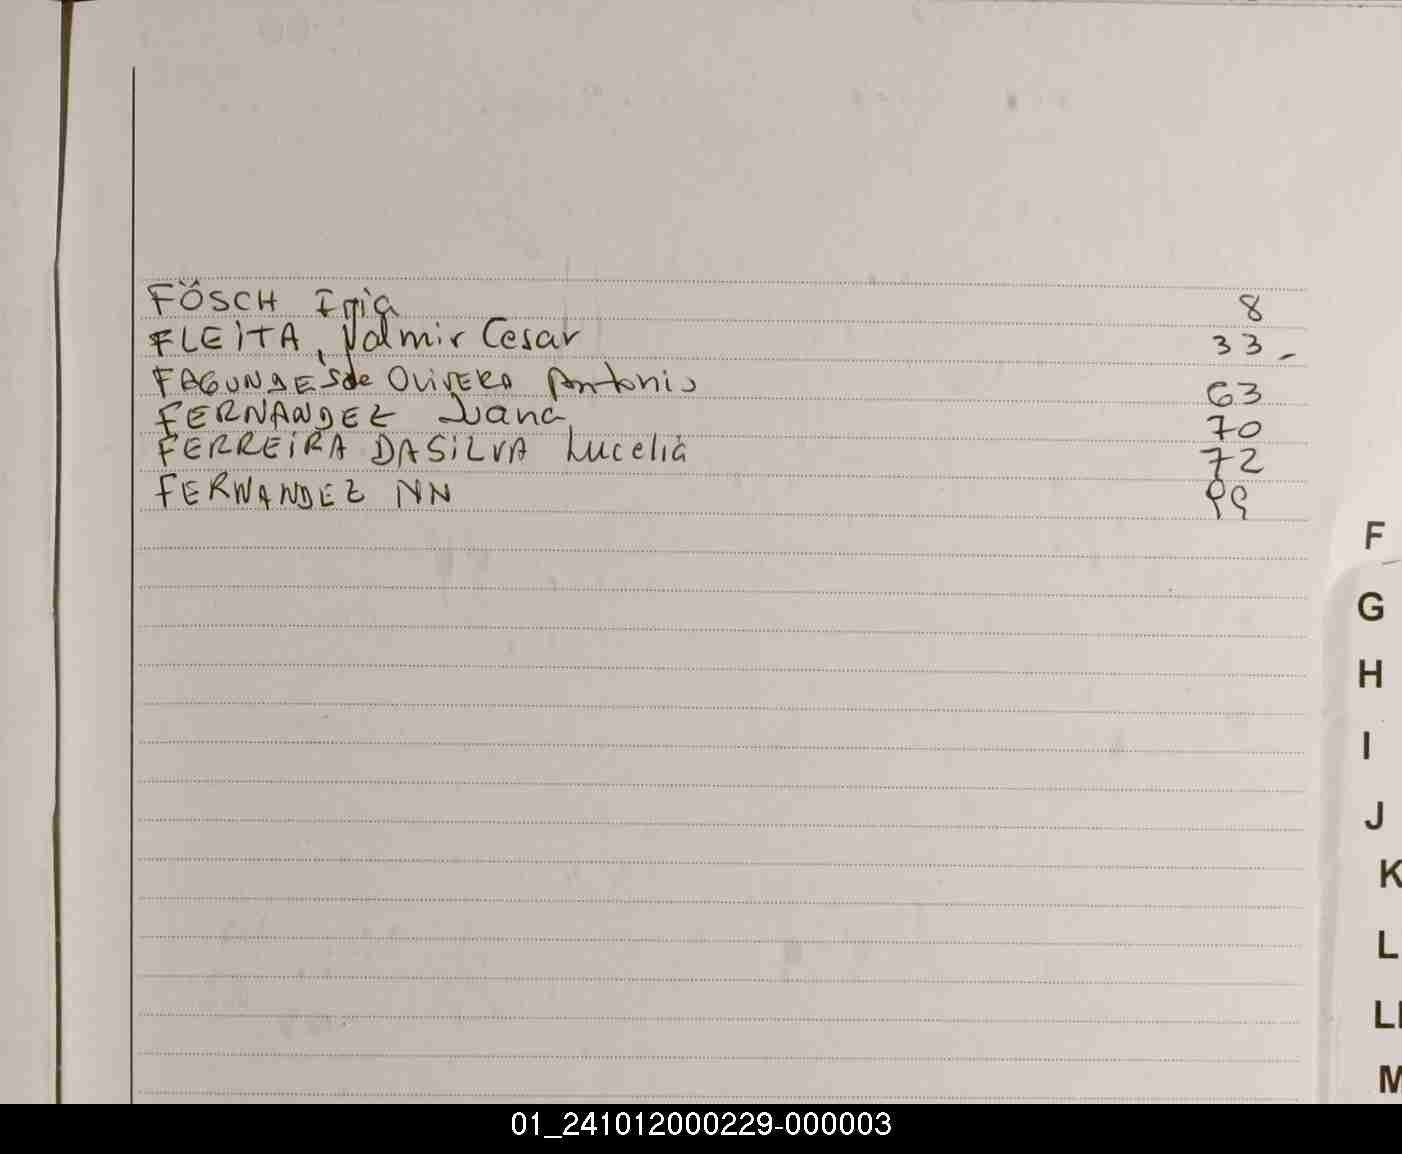 FÖSCH Iria 8
FLEITA, Valmir Cesar 33-
FAGUNDES de OLIVERA Antonio 63
FERNANDEZ Juana 70
FERREIRA DASILVA Lucelia 72
FERNANDEZ NN 99
F
G
H
I
J
K
L
LL
M
01_241012000229-000003